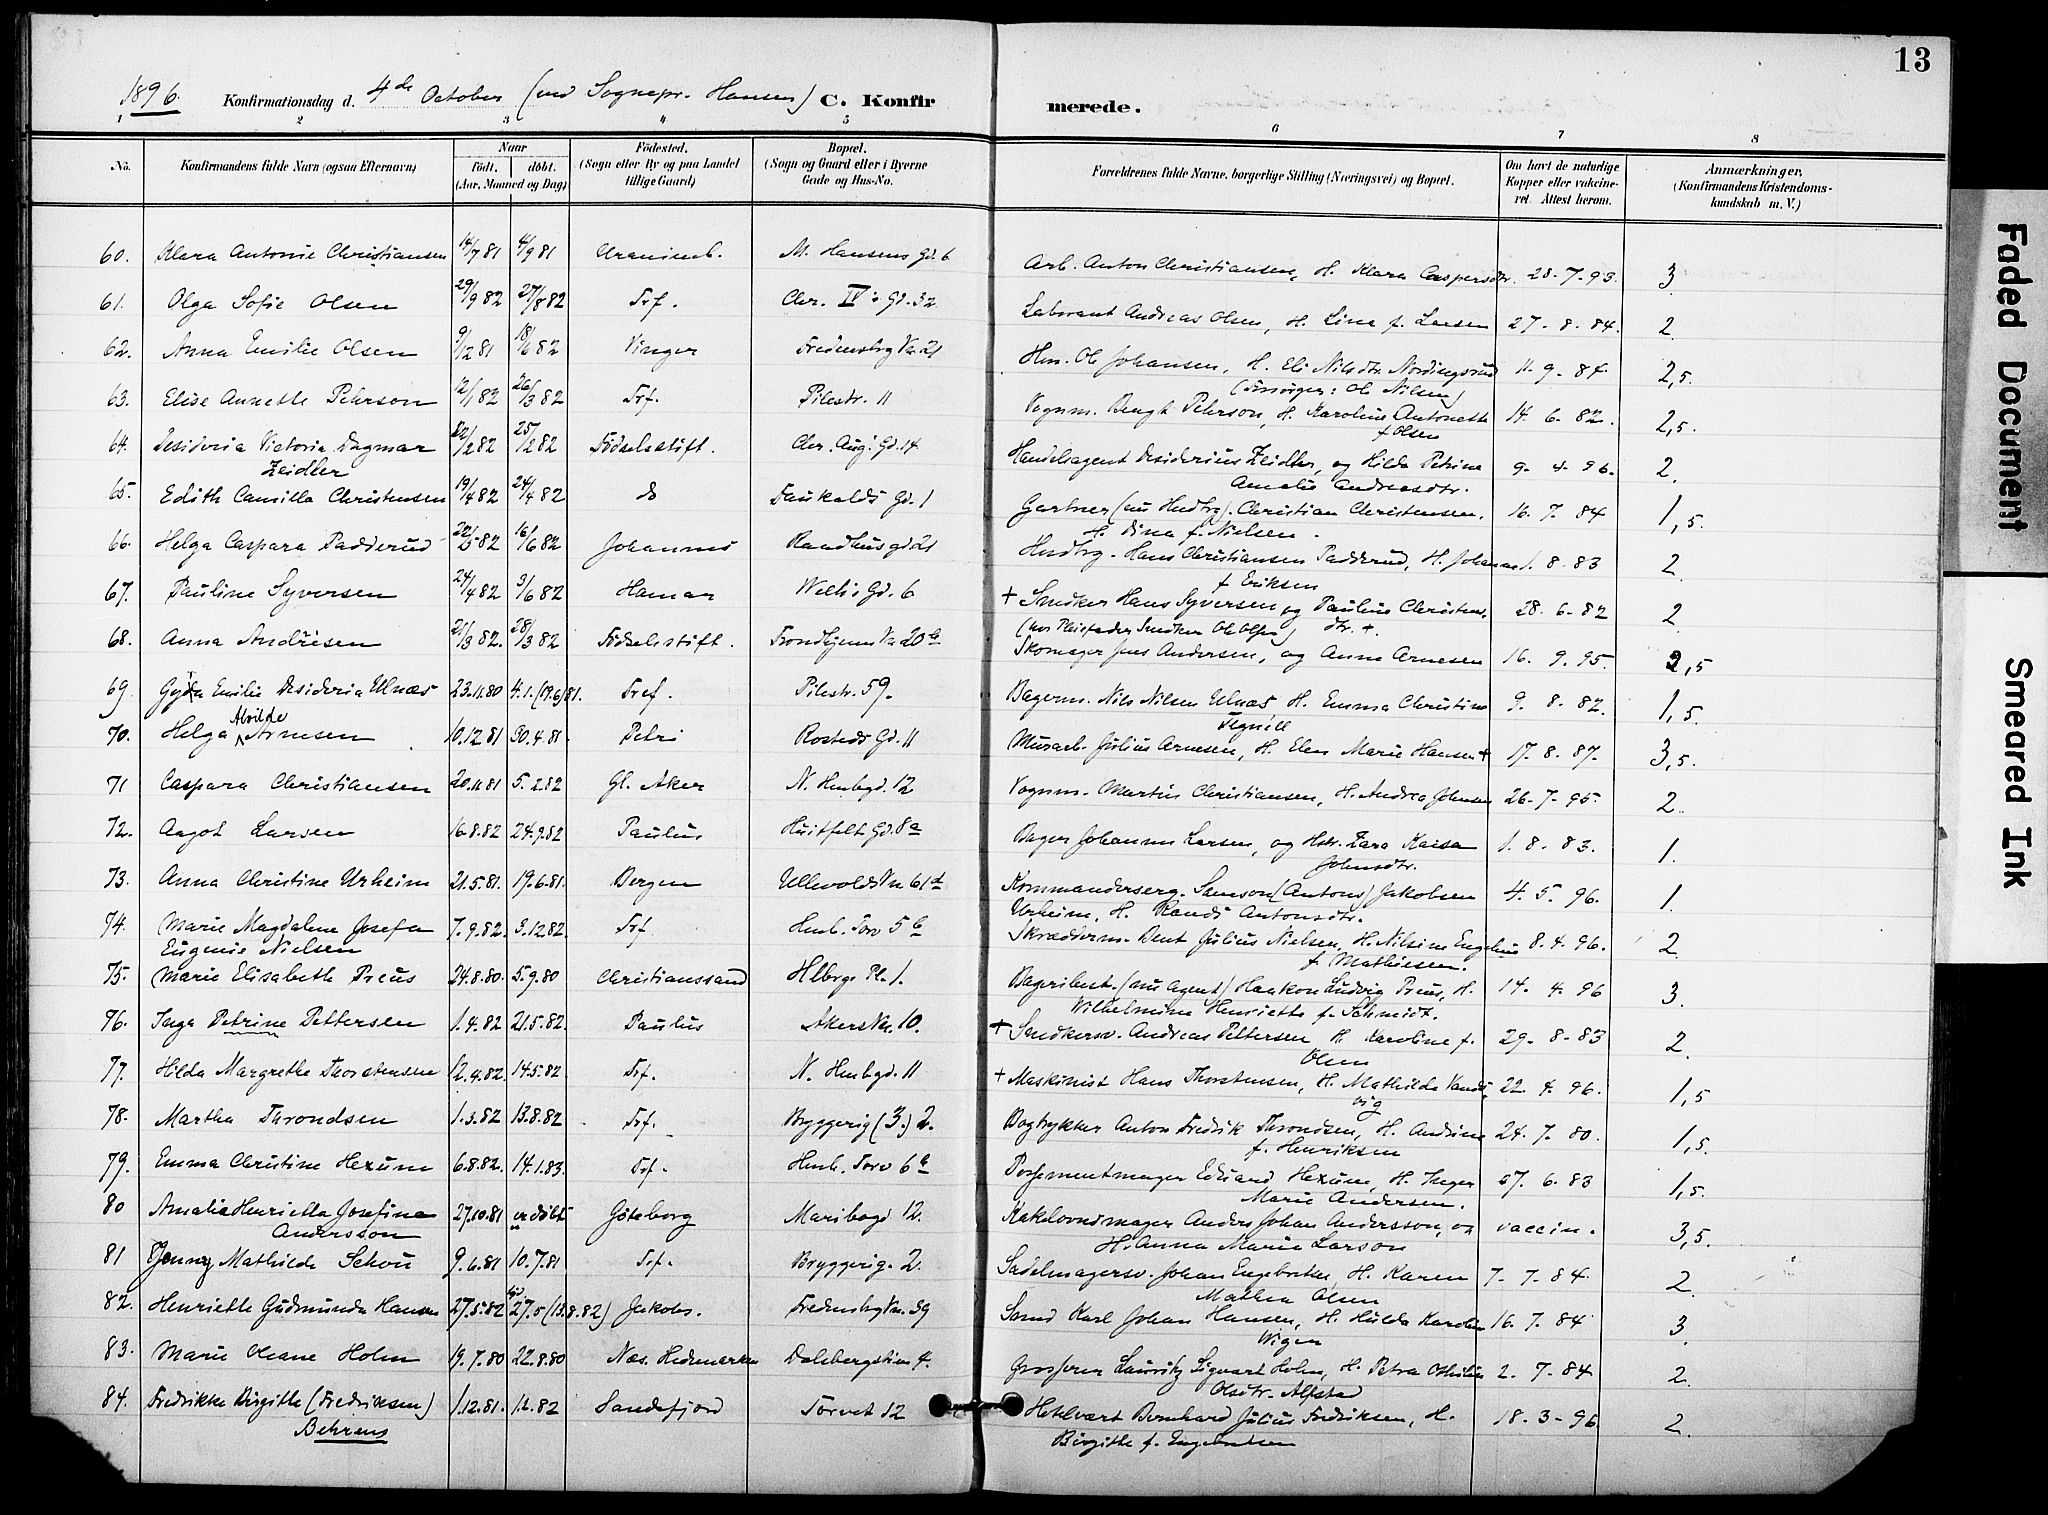 13
1896. Konfirmationsdag d. 4de October (ved Sognepr. Hansen) C. Konfirmerede.
1 2 3 4 5 6 7 8
No. Konfirmandens fulde Navn (ogsaa Efternavn) Naar Født. døbt. (Aar, Maaned og Dag) Fødested. (Sogn eller By og paa Landet tillige Gaard) Bopæl. (Sogn og Gaard eller i Byerne Gade og Hus-No. Forældrenes fulde Navne, borgerlige Stilling (Næringsvei) og Bopæl. Om havt de naturlige Kopper eller vaccineret. Attest herom. Anmærkninger, (Konfirmandens Kristendomskundskab m. V.)
60. Klara Antonie Christiansen 14/7 81 4/9 81 Uranienb. M. Hansens Gd. 6 Arb. Anton Christiansen, H. Klara Caspersdtr. 28-7-93. 3
61. Olga Sofie Olsen 29/9 82 27/8 82 Trf. Chr. IV's Gd. 32 Laborant Andreas Olsen, H. Lina f. Larsen 27-8-84. 2.
62. Anna Emilie Olsen 9/12 81 18/6 82 Vinger Fredensbg Vn. 21 Hm. Ole Johansen, H. Eli Nilsdtr. Nordingsrud 11-9-84. 2,5.
(Forsørger: Ole Nilsen)
63. Elise Annette Peterson 12/1 82 26/3 82 Trf. Pilestr. 11 Vognm. Bengt Peterson, H. Karoline Antonette 14-6-82. 2,5.
f. Olsen
64. Desideria Victoria Dagmar 22/2 82 25/2 82 Fødselsstift. Chr. Aug. Gd. 14 Handelsagent Desiderius Zeidler, og Hilda Petrine 9-4-96. 2.
Zeidler Amalie Andreasdtr.
65. Edith Camilla Christensen 19/4 82 24/4 82 do Faukalds Gd. 1 Gartner (nu Hndtvg). Christian Christensen, 16-7-84 1,5.
H. Dina f. Nielsen.
66. Helga Caspara Padderud 22/5 82 16/6 82 Johannes Raadhusgd 21 Hndtvg. Hans Christiansen Padderud, H. Johanne 1.8-83 2
f. Eriksen
67. Pauline Syversen 24/4 82 3/6 82 Hamar Wells Gd. 6 + Snedker Hans Syversen og Pauline Christens. 28.6-82 2
(hos Pleiefader Snedker Ole Olsen) dtr. +.
68. Anna Andrèsen 21/3 82. 28/3 82 Fødselsstift. Trondhjems Vn 20b Skomager Jens Andersen, og Anne Arnesen 16.9.95. 2,5
69. Gyda Emilie Desideria Ulnæs 23.11.80 4.1.(19.6)81. Tref. Pilestr. 59. Bagerm. Nils Nilsen Ulnæs H. Emma Christine 9.8-82. 1,5.
Tegnèll
70. Helga Alvilde Arnesen 10.12.81 30.4.81. Petri Rosteds Gd. 11 Murarb. Julius Arnesen, H. Elen Marie Hansen + 17-8-87. 3,5.
71 Caspara Christiansen 20.11.81 5.2.82 Gl. Aker N. Hmbgd. 12 Vognm. Martin Christiansen, H. Andrea Johnsen 26-7-95. 2.
72. Aagot Larsen 16.8.82 24.9.82 Paulus Huitfelt Gd. 8a Bager Johannes Larsen, og Hstr. Zara Kaisa 1.8-83. 1.
Johnsdtr.
73. Anna Christine Urheim 21.5.81. 19.6.81. Bergen Ullevolds Vn. 61d Kommandersrg. Samson (Antons) Jakobsen 4.5.96. 1.
Urheim, H. Randi Antonsdtr.
74. Marie Magdalene Josefa 7.9.82. 3.12.82. Trf Hmb. Torv 5b Skrædderm. Bent Julius Nielsen, H. Nilsine Engeline 8.4.96. 2
Eugenie Nielsen f. Mathiesen.
75. Marie Elisabeth Preus 24.8.80. 5.9.80 Christianssand Hlbrgs Pl. 1. Bageribest. (nu Agent) Haakon Ludvig Preus, H. 14-4-96 3.
Wilhelmine Henriette f. Schmidt.
76. Inga Petrine Pettersen 1.4.82 21.5.82. Paulus Akers Vn. 10. + Snedkersv. Andreas Pettersen H. Karoline f. 29-8-83 2.
Olsen
77. Hilda Margrethe Thorstensen 12.4.82. 14.5.82 Trf. N. Hmbgd. 11 + Maskinist Hans Thorstensen, H. Mathilde Vands- 22.4.96. 1,5
vig
78. Martha Throndsen 1.3.82 13.8.82 Trf. Bryggerig (3.) 2. Bogtrykker Anton Fredrik Throndsen, H. Andrine 24.7.80. 1,5.
f. Henriksen
79. Emma Christine Hexum 6.8.82. 14.1.83. Trf. Hmb. Torv 6b Possementmager Edvard Hexum, H. Inger 27.6.83 1,5.
Marie Andersen.
80 Amalia Henrietta Josefina 27.10.81 er døbt Göteborg Maribogd 12. Kakelovnsmager Anders Johan Andersson, og vaccin. 3,5.
Andersson H. Anna Maria Larson
81 Jenny Mathilde Schou 9.6.81 10.7.81 Trf. Bryggerig. 2. Sadelmagersv. Johan Engebretsen, H. Karen 7-7-84. 2.
Mathea Olsen
82. Henriette Gudmunda Hansen 27.5.82 27.5 (13.8.82) Jakobs. Fredensbg Vn. 39 Smed Karl Johan Hansen, H. Hulda Karoline 16.7.84 3.
Wigen
83. Marie Oleane Holm 19.7.80 22.8.80 Næs. Hedemarken Dalsbergstien 4. Grosserer Lauritz Sigvart Holm, H. Petra Othilie 2-7-84 2.
Olsdtr. Alfstad
84. Fredrikke Birgitte (Fredriksen) 1.12.81. 1.1.82 Sandefjord Torvet 12 Hotelvært Bernhard Julius Fredriksen, H. 18-3-96 2.
Behrens Birgitte f. Engebretsen
Faded Document
Smeared Ink